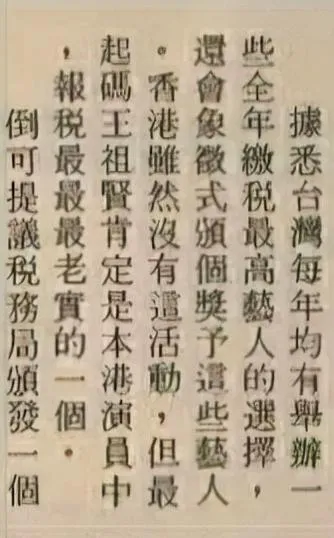 據悉台灣每年均有舉辦一
些全年繳税最高藝人的選擇，
還會象徵式頒個獎予這些藝人
。香港雖然沒有這活動，但最
起碼王祖賢肯定是本港演員中
，報税最最最老實的一個。
倒可提議税務局頒發一個